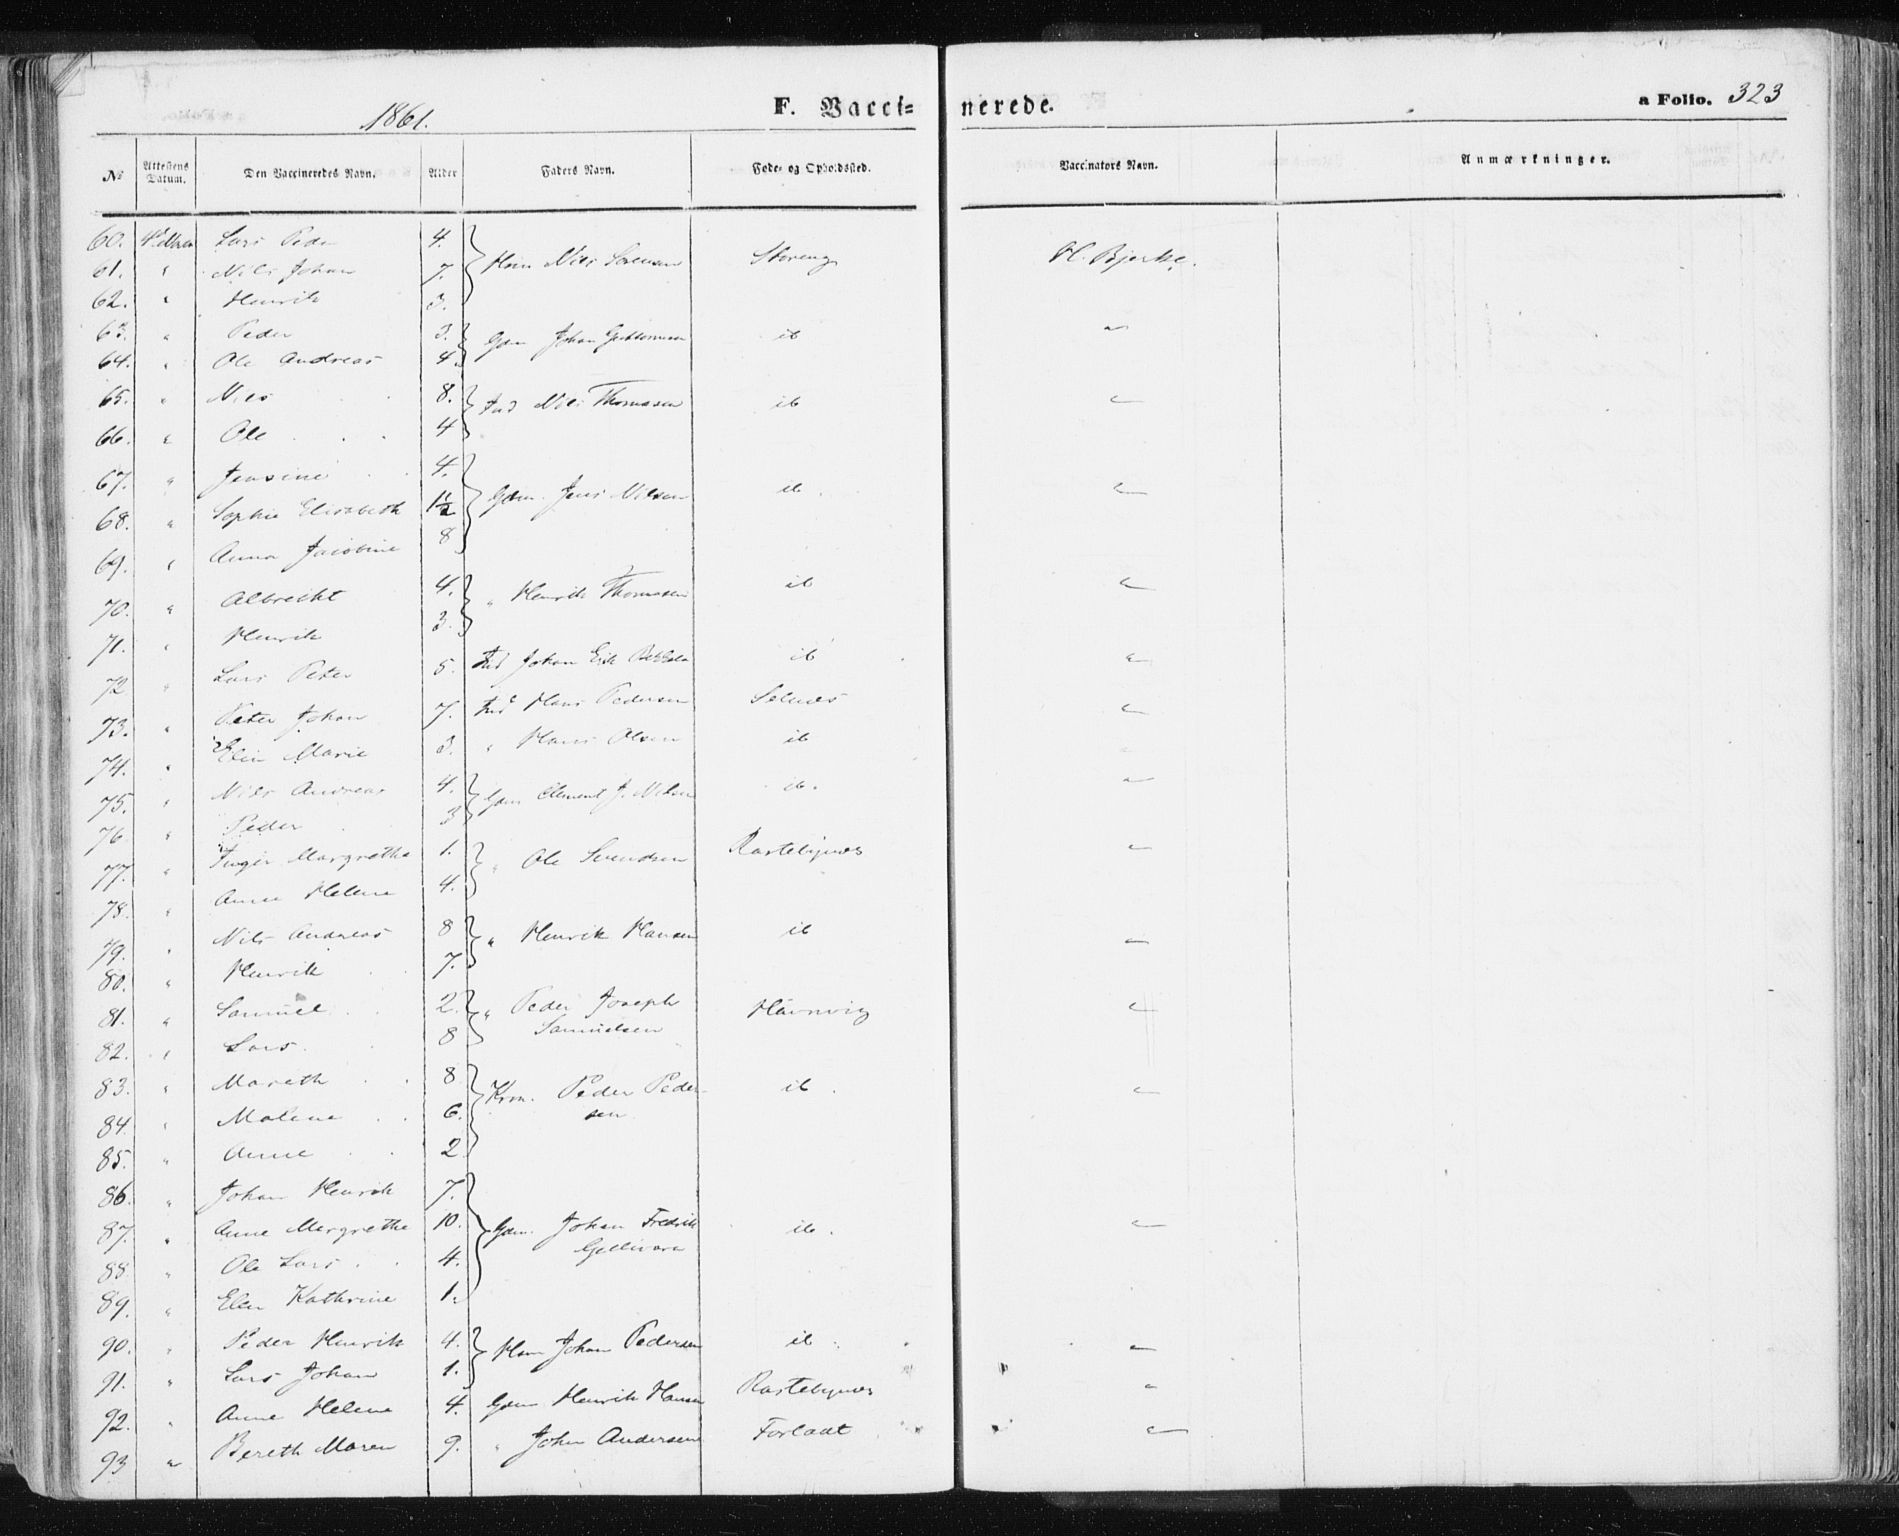 1861. F. Vacci= nerede. a Folio. 323
No Attestens Datum. Den Vaccineredes Navn. Alder Faders Navn. Føde- og Opholdssted. Vaccinators Navn. Anmærkninger.
60. Lars Peder 4.
61. " Nils Johan 7. Nils Sørensen Storeng H. Bjerke.
62. " Henrik 3.
63. " Peder 3. Gdm Johan Guttormsen ib "
64. " Ole Andreas 4.
65. " Nils 8. Ind Nils Thomasen ib "
66. " Ole 4
67. " Jensine 4.
68. " Sophie Elisabeth 1½ Gdm. Jens Nilsen ib. "
69. " Anna Jacobine 8
70. " Albrecht 4. " Henrik Thomasen ib "
71. " Henrik 3.
72 " Lars Peter 5. Ind Johan Erik ib "
73. " Peter Johan 7. Ind Hans Pedersen Selnæs "
74. " Elen Marie 3. " Hans Olsen ib "
75. " Nils Andreas 4. Gdm Clement J. Nilsen ib. "
76. " Peder 3
77. " Inger Margrethe 1. " Ole Svendsen Rastebynæs "
78. " Anne Helene 4.
79. " Nils Andreas 8 " Henrik Hansen ib "
80. " Henrik 7.
81. " Samuel 2. " Peder Joseph Samuelsen Havnvig "
82. " Lars. 8
83. " Mareth 8 Peder Pedersen ib. "
84. " Malene 6.
85. " Anne 2
86. " Johan Henrik 7.
87. " Anne Margrethe 10. Gdm. Johan Fredrik Gellivara ib. "
88. " Ole Lars 4.
89. " Elen Kathrine 1.
90. " Peder Henrik 4. Johan Pedersen ib "
91. " Lars Johan 1.
92. " Anne Helene 4. Gdm Henrik Hansen Rastebynæs "
93 " Bereth Maren 9. " John Andersen Forladt "